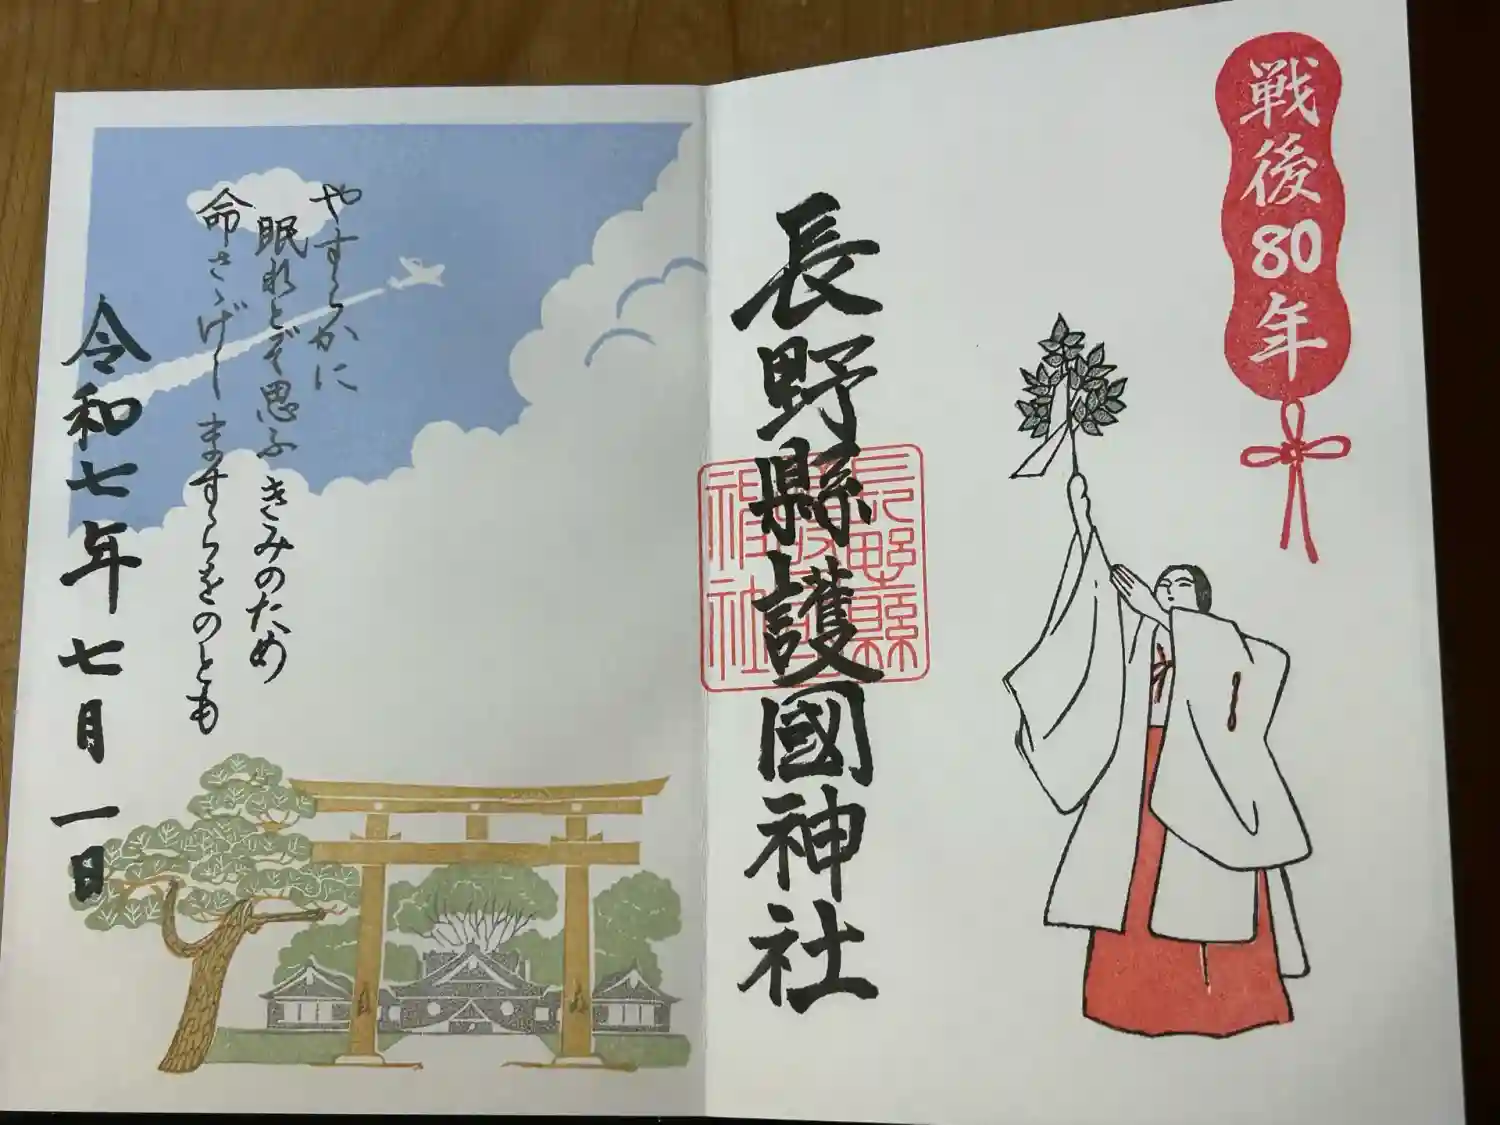 戦後80年
長野縣護國神社
長野縣
護國
神社
やすらかに
眠れとぞ思ふきみのため
命さゝげしますらをのとも
令和七年七月一日